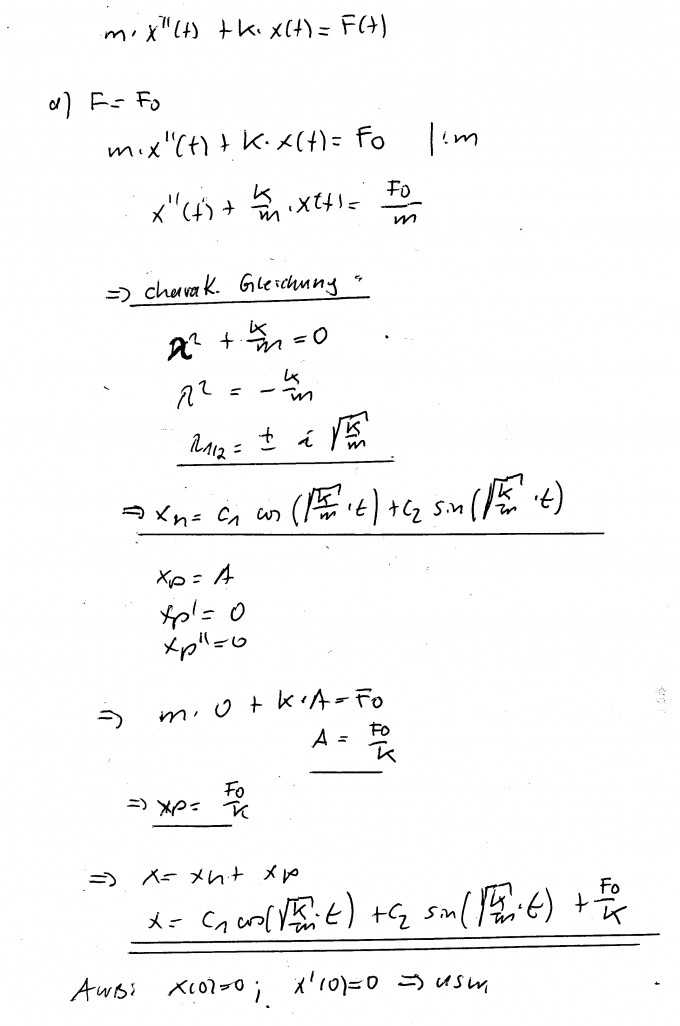 m · x''(t) + k · x(t) = F(t)
a) F = F₀
m · x''(t) + k · x(t) = F₀ | : m
x''(t) + k/m · x(t) = F₀/m
⇒ charak. Gleichung:
λ² + k/m = 0
λ² = - k/m
λ₁/₂ = ± i √(k/m)
⇒ xₕ = c₁ cos (√(k/m) · t) + c₂ sin (√(k/m) · t)
xp = A
xp' = 0
xp'' = 0
⇒ m · 0 + k · A = F₀
A = F₀/k
⇒ xp = F₀/k
⇒ x = xₕ + xp
x = c₁ cos (√(k/m) · t) + c₂ sin (√(k/m) · t) + F₀/k
AWB: x(0) = 0 ; x'(0) = 0 ⇒ usw,